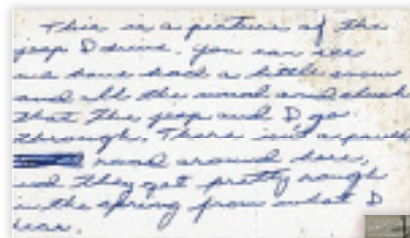 This is a picture of the
jeep I drive. You can see
we have had a little snow
and all the mud and slush
that the jeep and I go
through. There isn't a paved
road around here,
and they get pretty rough
in the spring from what I
hear.